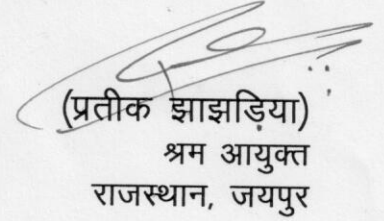 (प्रतीक झाझड़िया)
श्रम आयुक्त
राजस्थान, जयपुर